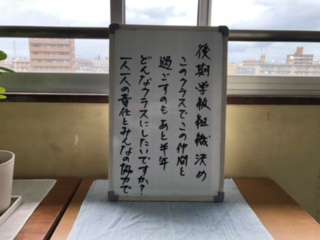 後期学級組織決め
このクラスでこの仲間と
過ごすのもあと半年
どんなクラスにしたいですか?
一人一人の責任とみんなの協力で